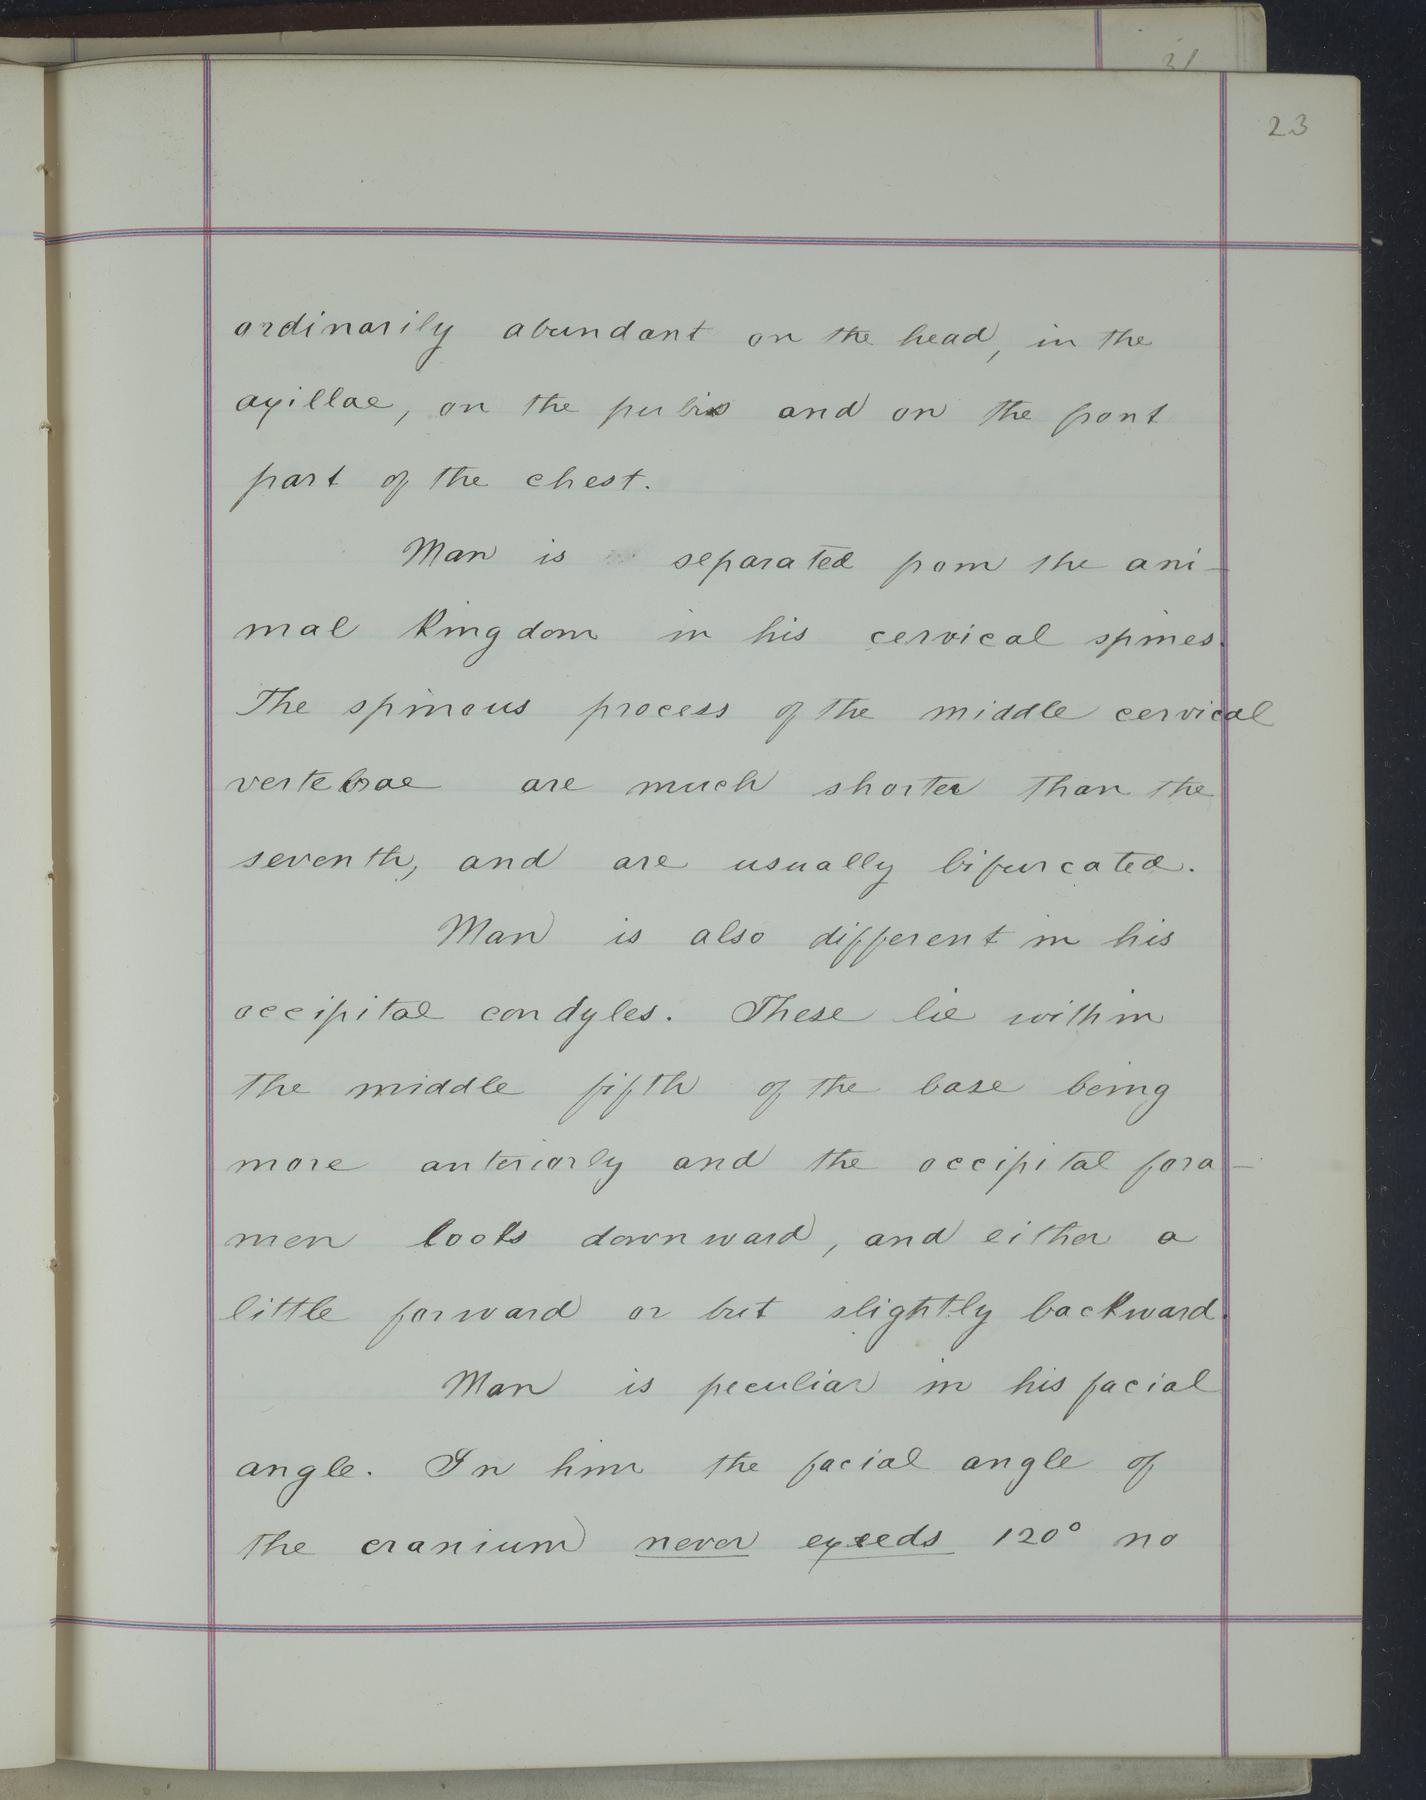 31
23
ordinarily abundant on the head, in the
axillae, on the pubis and on the front
part of the chest.
Man is separated from the ani-
mal kingdom in his cervical spines.
The spinous process of the middle cervical
vertebrae are much shorter than the
seventh, and are usually bifurcated.
Man is also different in his
occipital condyles. These lie within
the middle fifth of the base being
more anteriorly and the occipital fora-
men looks downward, and either a
little forward or but slightly backward.
Man is peculiar in his facial
angle. In him the facial angle of
the cranium never exeeds 120° no